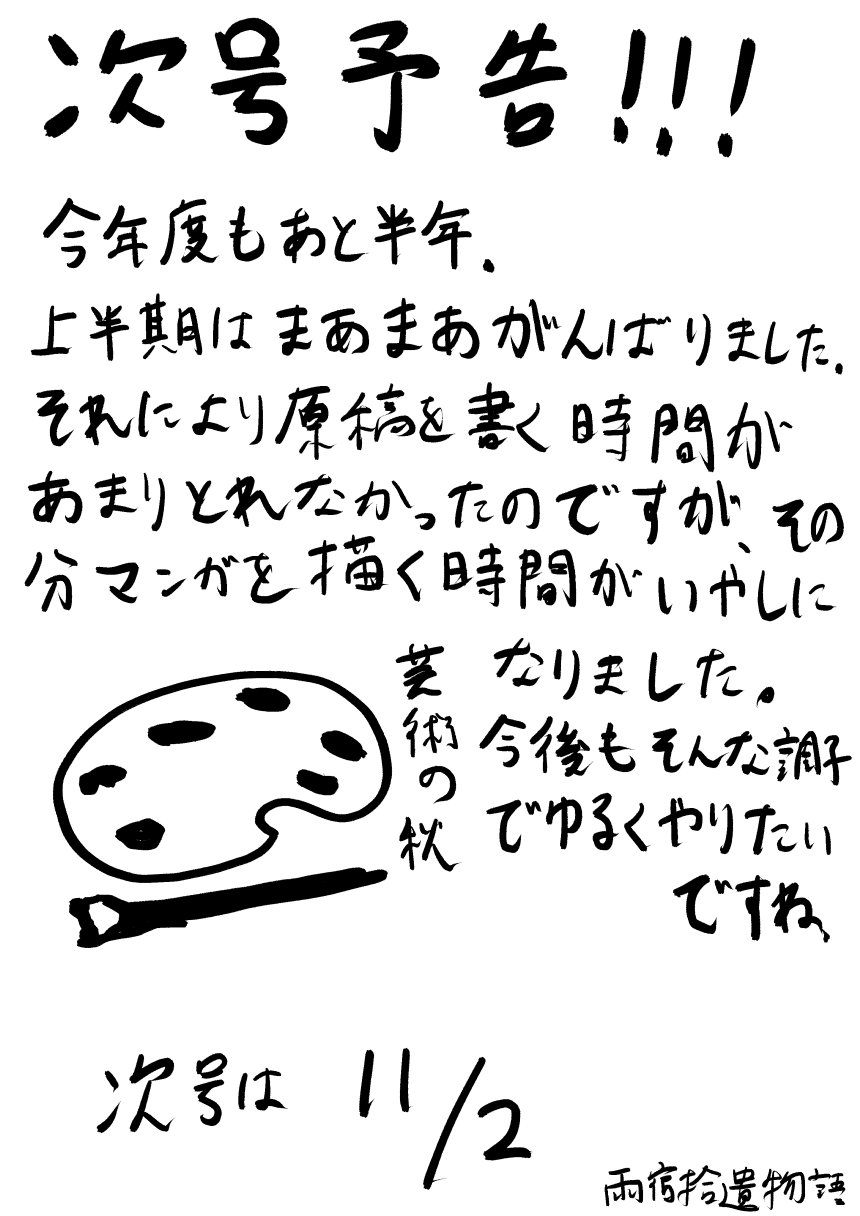 次号予告!!!
今年度もあと半年.
上半期はまあまあがんばりました.
それにより原稿を書く時間が
あまりとれなかったのですが、その
分マンガを描く時間がいやしに
なりました。
今後もそんな調子
でゆるくやりたい
ですね、
芸術の秋
次号は 11/2
雨宿拾遺物語